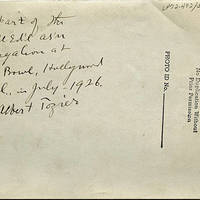 part of the
N Ed'l ass'n
gation at
Bowl, Hollywood
l., in July - 1926.
Albert Tozier
PHOTO ID No.
No Duplication Without
Prior Permission